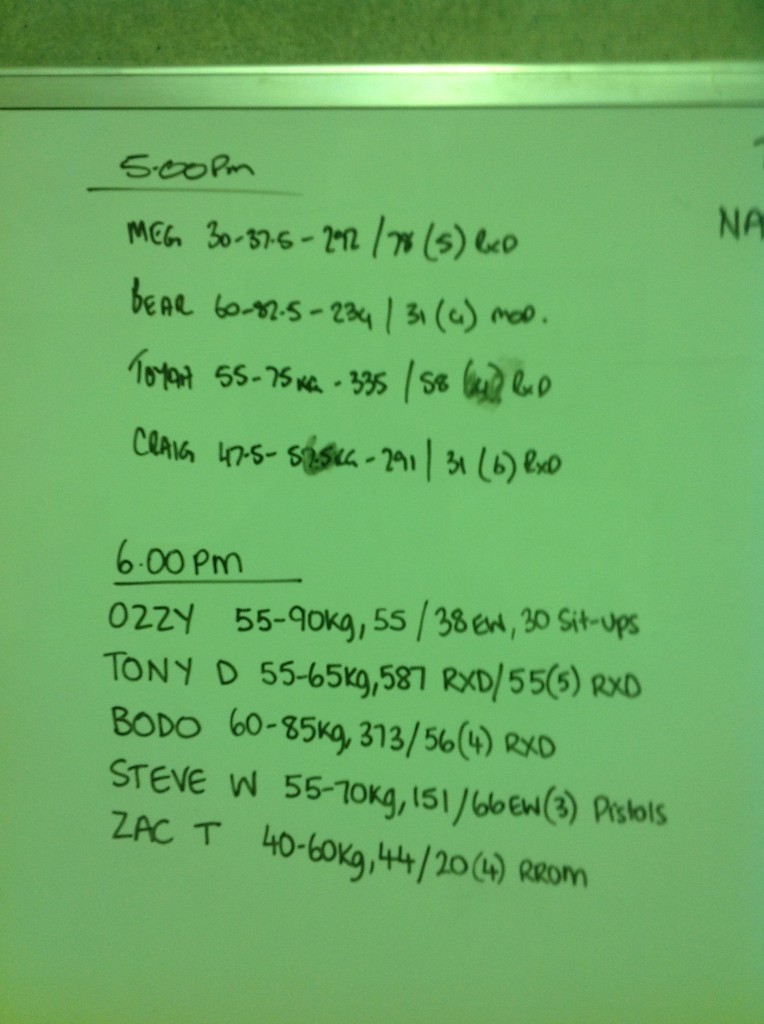 5.00pm
NA
MEG 30-37.5 - 292 / 78 (5) RxD
BEAR 60-82.5 - 234 / 31 (4) MOD.
55-75KG - 335 / 58 RxD
CRAIG 47.5 - 57.5KG - 291 / 31 (6) RxD
6.00pm
OZZY 55-90kg, 55 / 38EW, 30 Sit-ups
TONY D 55-65kg, 587 RXD/55(5) RXD
BODO 60-85kg, 373/56(4) RXD
STEVE W 55-70kg, 151/66EW(3) Pistols
ZAC T 40-60kg, 44/20(4) RROM